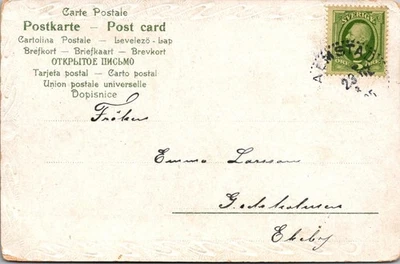 Carte Postale
Postkarte – Post card
Cartolina Postale – Levelező-Lap
Brefkort – Briefkaart – Brevkort
ОТКРЫТОЕ ПИСЬМО
Tarjeta postal – Carto postal
Union postale universelle
Dopisnice
SVERIGE
23
Fröken
Emma Larsson
Ekeby